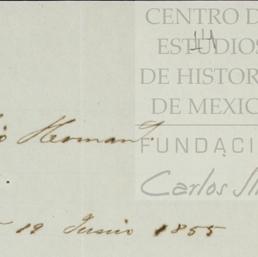 CENTRO D
ESTUDIOS
DE HISTOR
DE MEXIC
FUNDACI
Carlos Sl
Hernan
19 Junio 1855